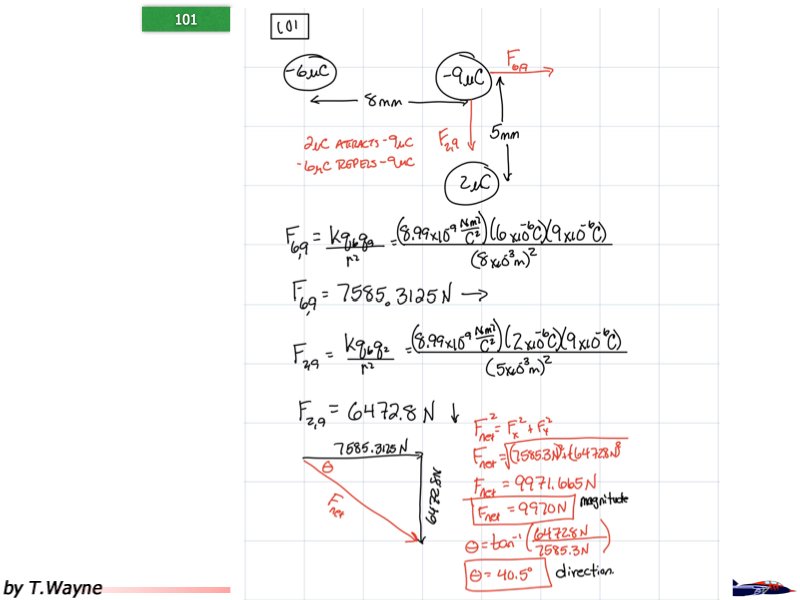 101
101
-6μC
-9μC
F₆,₉
8mm
5mm
F₂,₉
2μC ATTRACTS -9μC
-6μC REPELS -9μC
2μC
F₆,₉ = kq₆q₉/r² = (8.99x10⁹ Nm²/C²)(6x10⁻⁶C)(9x10⁻⁶C)/(8x10⁻³m)²
F₆,₉ = 7585.3125N →
F₂,₉ = kq₆q₂/r² = (8.99x10⁹ Nm²/C²)(2x10⁻⁶C)(9x10⁻⁶C)/(5x10⁻³m)²
F₂,₉ = 6472.8N ↓
7585.3125N
θ
6472.8N
Fnet
Fnet² = Fx² + Fy²
Fnet = √(7585.3N)²+(6472.8N)²
Fnet = 9971.665N
Fnet = 9970N magnitude
θ = tan⁻¹(6472.8N/7585.3N)
θ = 40.5° direction.
by T.Wayne